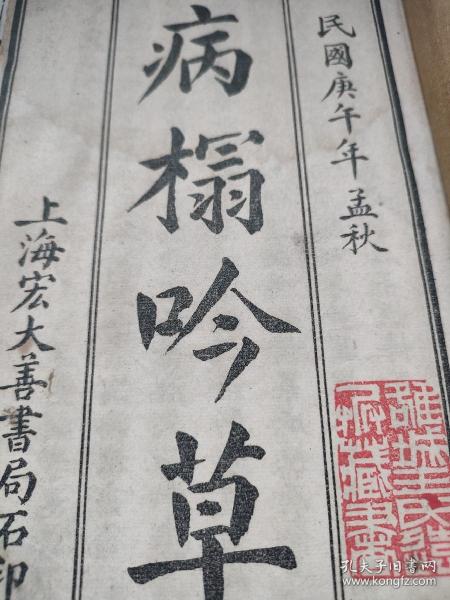 民國庚午年孟秋
病榻吟草
上海宏大善書局石印
孔夫子旧书网